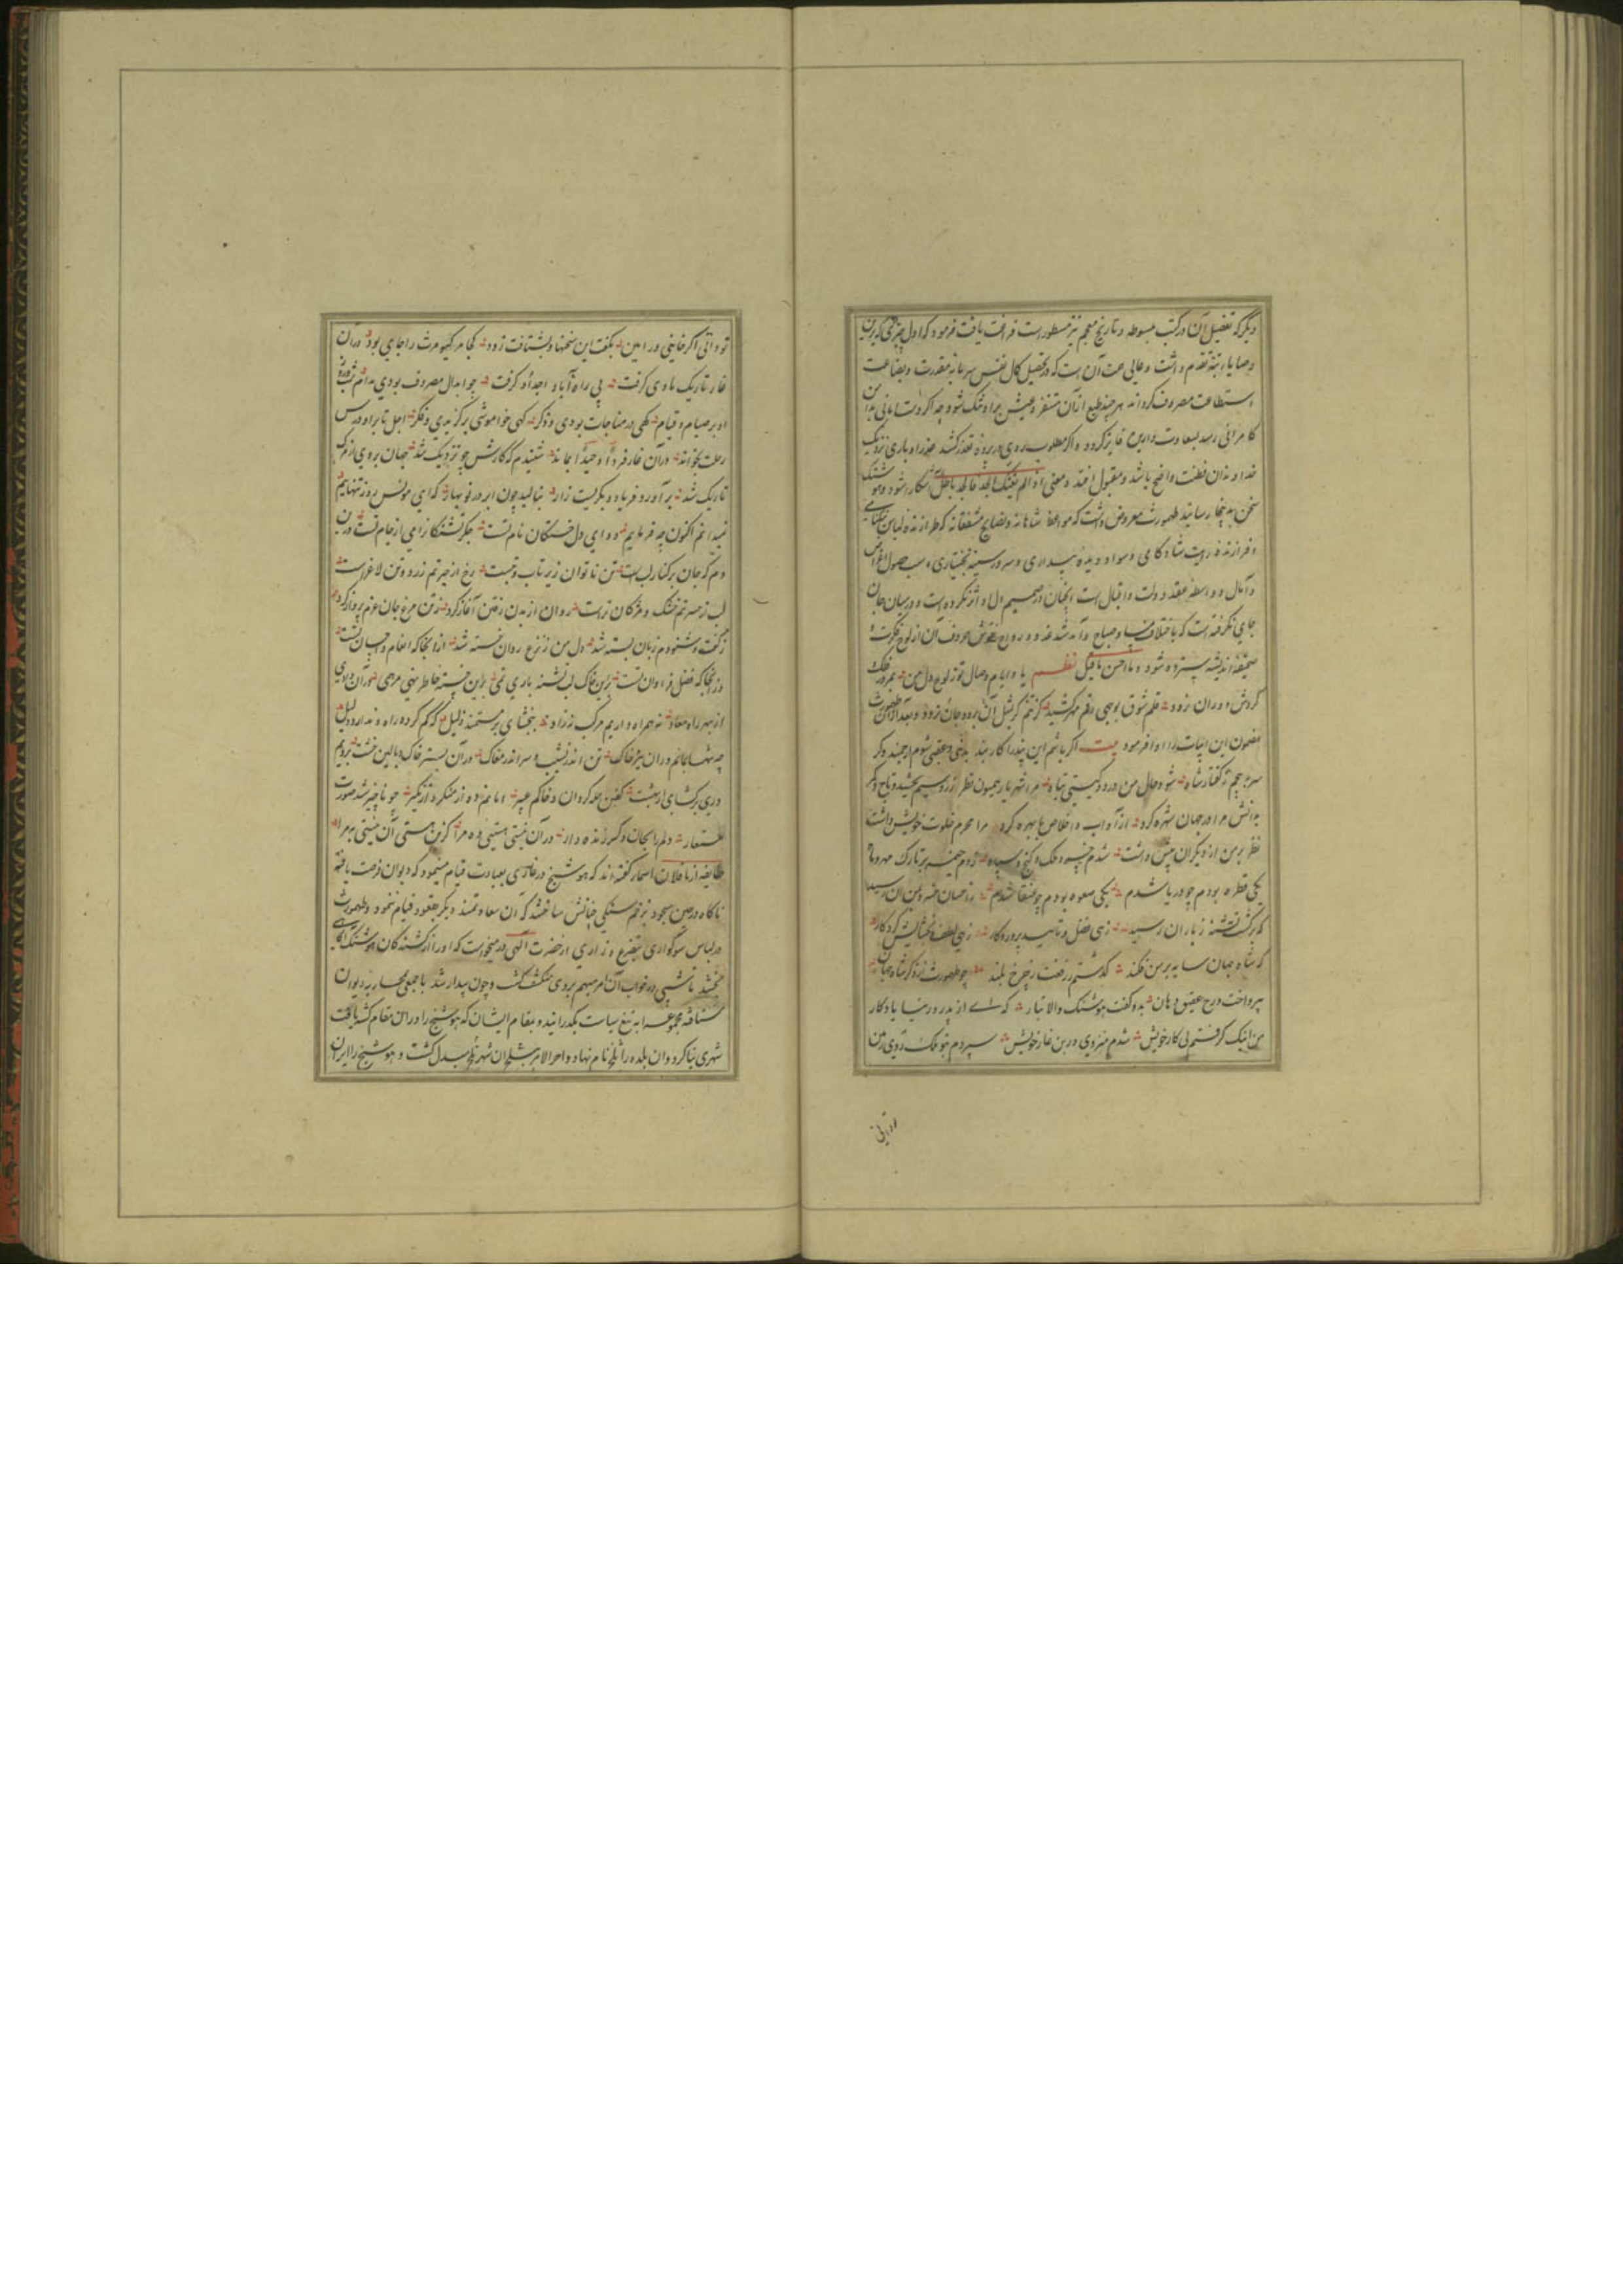 دیگر که تفضیل آن در کتب مبسوطه و تاریخ معجم نیز مسطور است فراغت یافت فرمود که اول چیزی که برین
وصایا رتبهٔ تقدم داشت و عالی همت آن است که در تحصیل کمال نفس سرمایهٔ مقدرت و بضاعت
استطاعت مصروف گرداند هر چند طبع ازآن متنفر و عیش برو تنک شود چه اگر دست امانی بدامن
کامرانی رسد بسعادت دارین فایز گردد و اگر مطلوب روی در پرده تعذر کشد عذر او باری نزدیک
خداوندان فطنت واضح باشد و مقبول افتد و معنی اذا لم یغنک الجد فالجد باطل آشکارا شود و هوشنک
سخن بدینجا رسانید طهمورث معروض داشت که مواعظ شاهانه و نصایح مشفقانه که طرازنده لباس
و فرازنده رایت شاد کامی و سواد دیده بیداری و سرور سینه بختیاری و سبب حصول اغراض
و آمال و واسطه عقد دولت و اقبال است آنچنان در صمیم دل اثر کرده است و در میان جان
جای گرفته است که باختلاف مسا و صباح و آمد شد غدو و رواح نقوش حروف آن از لوح فکرت و
صحیفه اندیشه سترده شود و ما احسن ما قیل نظم یاد ایام وصال تو ز لوح دل من
گردش دوران نزدود قلم شوق بوجهی رقم مهر کشید و بعد ازآن طهمورث
مضمون این ابیات را ادا فرمود بیت اگر باشم این پند را کار بند بدنیی و عقبی شوم ارجمند و گر
سر بپیچم ز گفتار شاه شود حال من در دو گیتی تباه مرا شهریار همیون نظر
بدانش مرا در جهان شهره کرد از آداب و اخلاص با بهره کرد مرا محرم خلوت خویش داشت
نظر بر من از دیگران بیش داشت شدم خسرو ملک و گنج و سپاه زدم خیمه بر تارک مهر و ماه
یکی قطره بودم چو دریا شدم یکی صعوه بودم چو عنقا شدم ز احسان خسرو بمن آن رسید
که بر کشت تشنه ز باران رسید زهی فضل و تایید پروردگار زهی لطف و بخشایش کردگار
که شاه جهان سایه بر من فکند گذشتم ز رفعت ز چرخ بلند چو طهمورث از ذکر شاه جهان
بپرداخت درج عقیق دهان بدو گفت هوشنک والا تبار که ای از پدر در دنیا یادگار
من اینک گرفتم پی کار خویش شدم منزوی در بن غار خویش سپردم بتو ملک روی زمین
تو دانی
تو دانی اگر خاینی ور امین بگفت این سخنها و بشتافت زود کجا مر کیومرث را جای بود در آن
غار تاریک ماوی گرفت پی راه آباء و اجداد گرفت چو ابدال مصروف بودی مدام
او بر صیام و قیام گهی در مناجات بودی و ذکر گهی خواموشی بر گزیدی و فکر اجل تا برو درس
رحلت بخواند در آن غار فردا وحیدا بماند شنیدم که کارش چو نزدیک شد جهان بروی از مرک
تاریک شد بر آورد فریاد و بگریست زار بنالید چون ابر در نوبهار که ای مونس روز تنهاییم
نمیدانم اکنون چه فرماییم دوای دل خستگان نام تست جگر تشنگان را می از جام تست درین
دم که جان بر کنار لبست تن ناتوان زیر تاب و تبست رخ از حیرتم زرد و تن لاغر است
لب از حسرتم خشک و مژگان تر است روان از بدن رفتن آغاز کرد ز تن مرغ جان عزم پرواز کرد
ز گفت و شنودم زبان بسته شد دل من ز نزع روان خسته شد از آنجا که انعام و احسان تست
وز آنجا که فضل فراوان تست برین خاک لب تشنه باری نمی برین خسته خاطر بنه مرهمی در آن وادی
از بهر راه معاد نه همراه داریم مرکب نه زاد ببخشای بر مستمند ذلیل که گم کرده راه و ندارد دلیل
چه شبها بمانم در آن تیره خاک تن اندر نشیب و سر اندر مغاک در آن بستر خاک و بالین خشت برویم
دری برگشای از بهشت کفن حله گردان و خاکم عبیر امانم ده از منکر و از نکیر چو ناچیز شد صورت
مستعار دلم را بجان دگر زنده دار در آن نیستی هستیی ده مرا کزین هستی آن نیستی به مرا
طایفه از ناقلان اسمار گفته‌اند که هوشنج در غاری بعبادت قیام مینمود که دیوان فرصت یافته
ناگاه در حین سجود بزخم سنگی چنانش ساختند که آن سعادتمند دیگر بقعود و قیام ننمود و طهمورث
در لباس سوگواری بتضرع و زاری از حضرت الهی در میخواست که او را از کشندگان هوشنک آگاهی
بخشد تا شبی در خواب آن امر مبهم بروی منکشف گشت و چون بیدار شد با جمعی بمحاربه دیوان
شتافته مجموع را به تیغ سیاست بگذرانید و بمقام ایشان که هوشنج را در آن مقام کشته یافت
شهری بنا کرد و آن بلده را بلخ نام نهاد و هوشنج را ایران